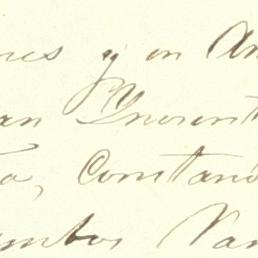 nes y en An
an Ynocent
to, Constanc
ambos Van